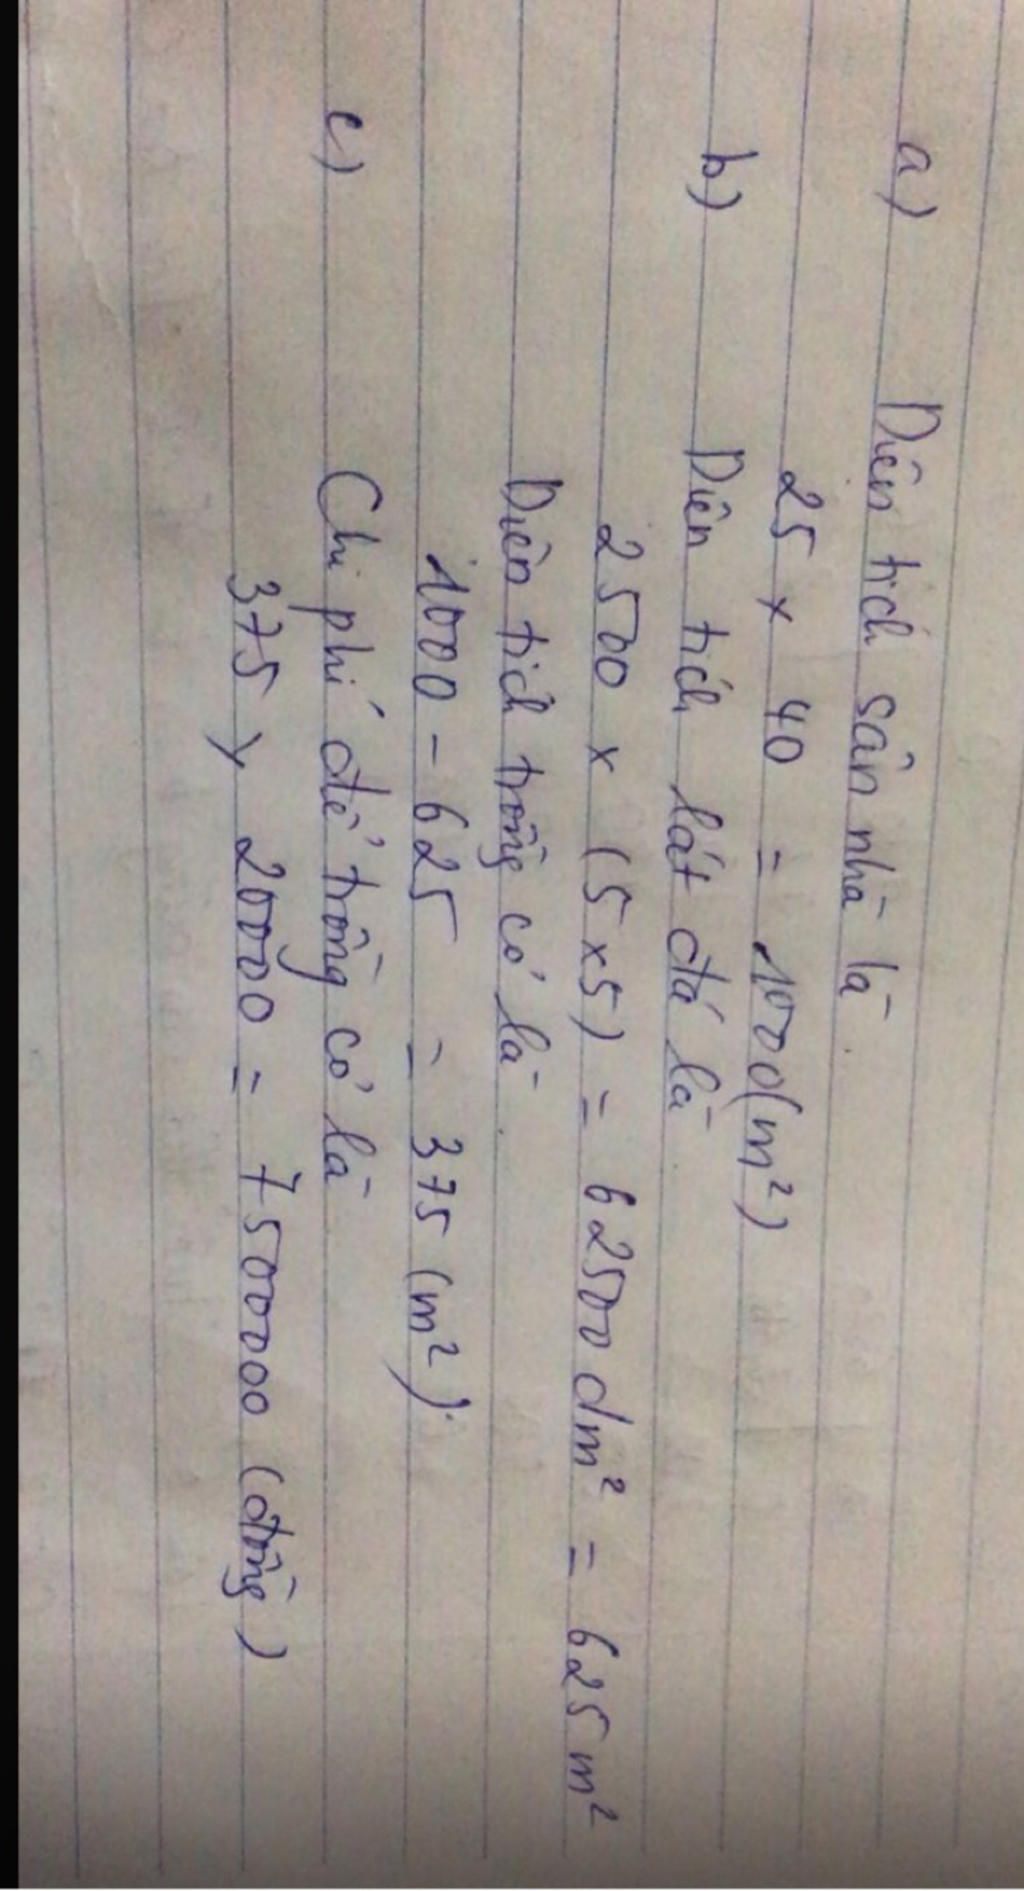 a) Diện tích sân nhà là
25 x 40 = 1000(m²)
b) Diện tích lát đá là
2500 x (5x5) = 62500 dm² = 625 m²
Diện tích trồng cỏ là.
1000 - 625 = 375 (m²).
c) Chi phí để trồng cỏ là
375 x 20000 = 7500000 (đồng)